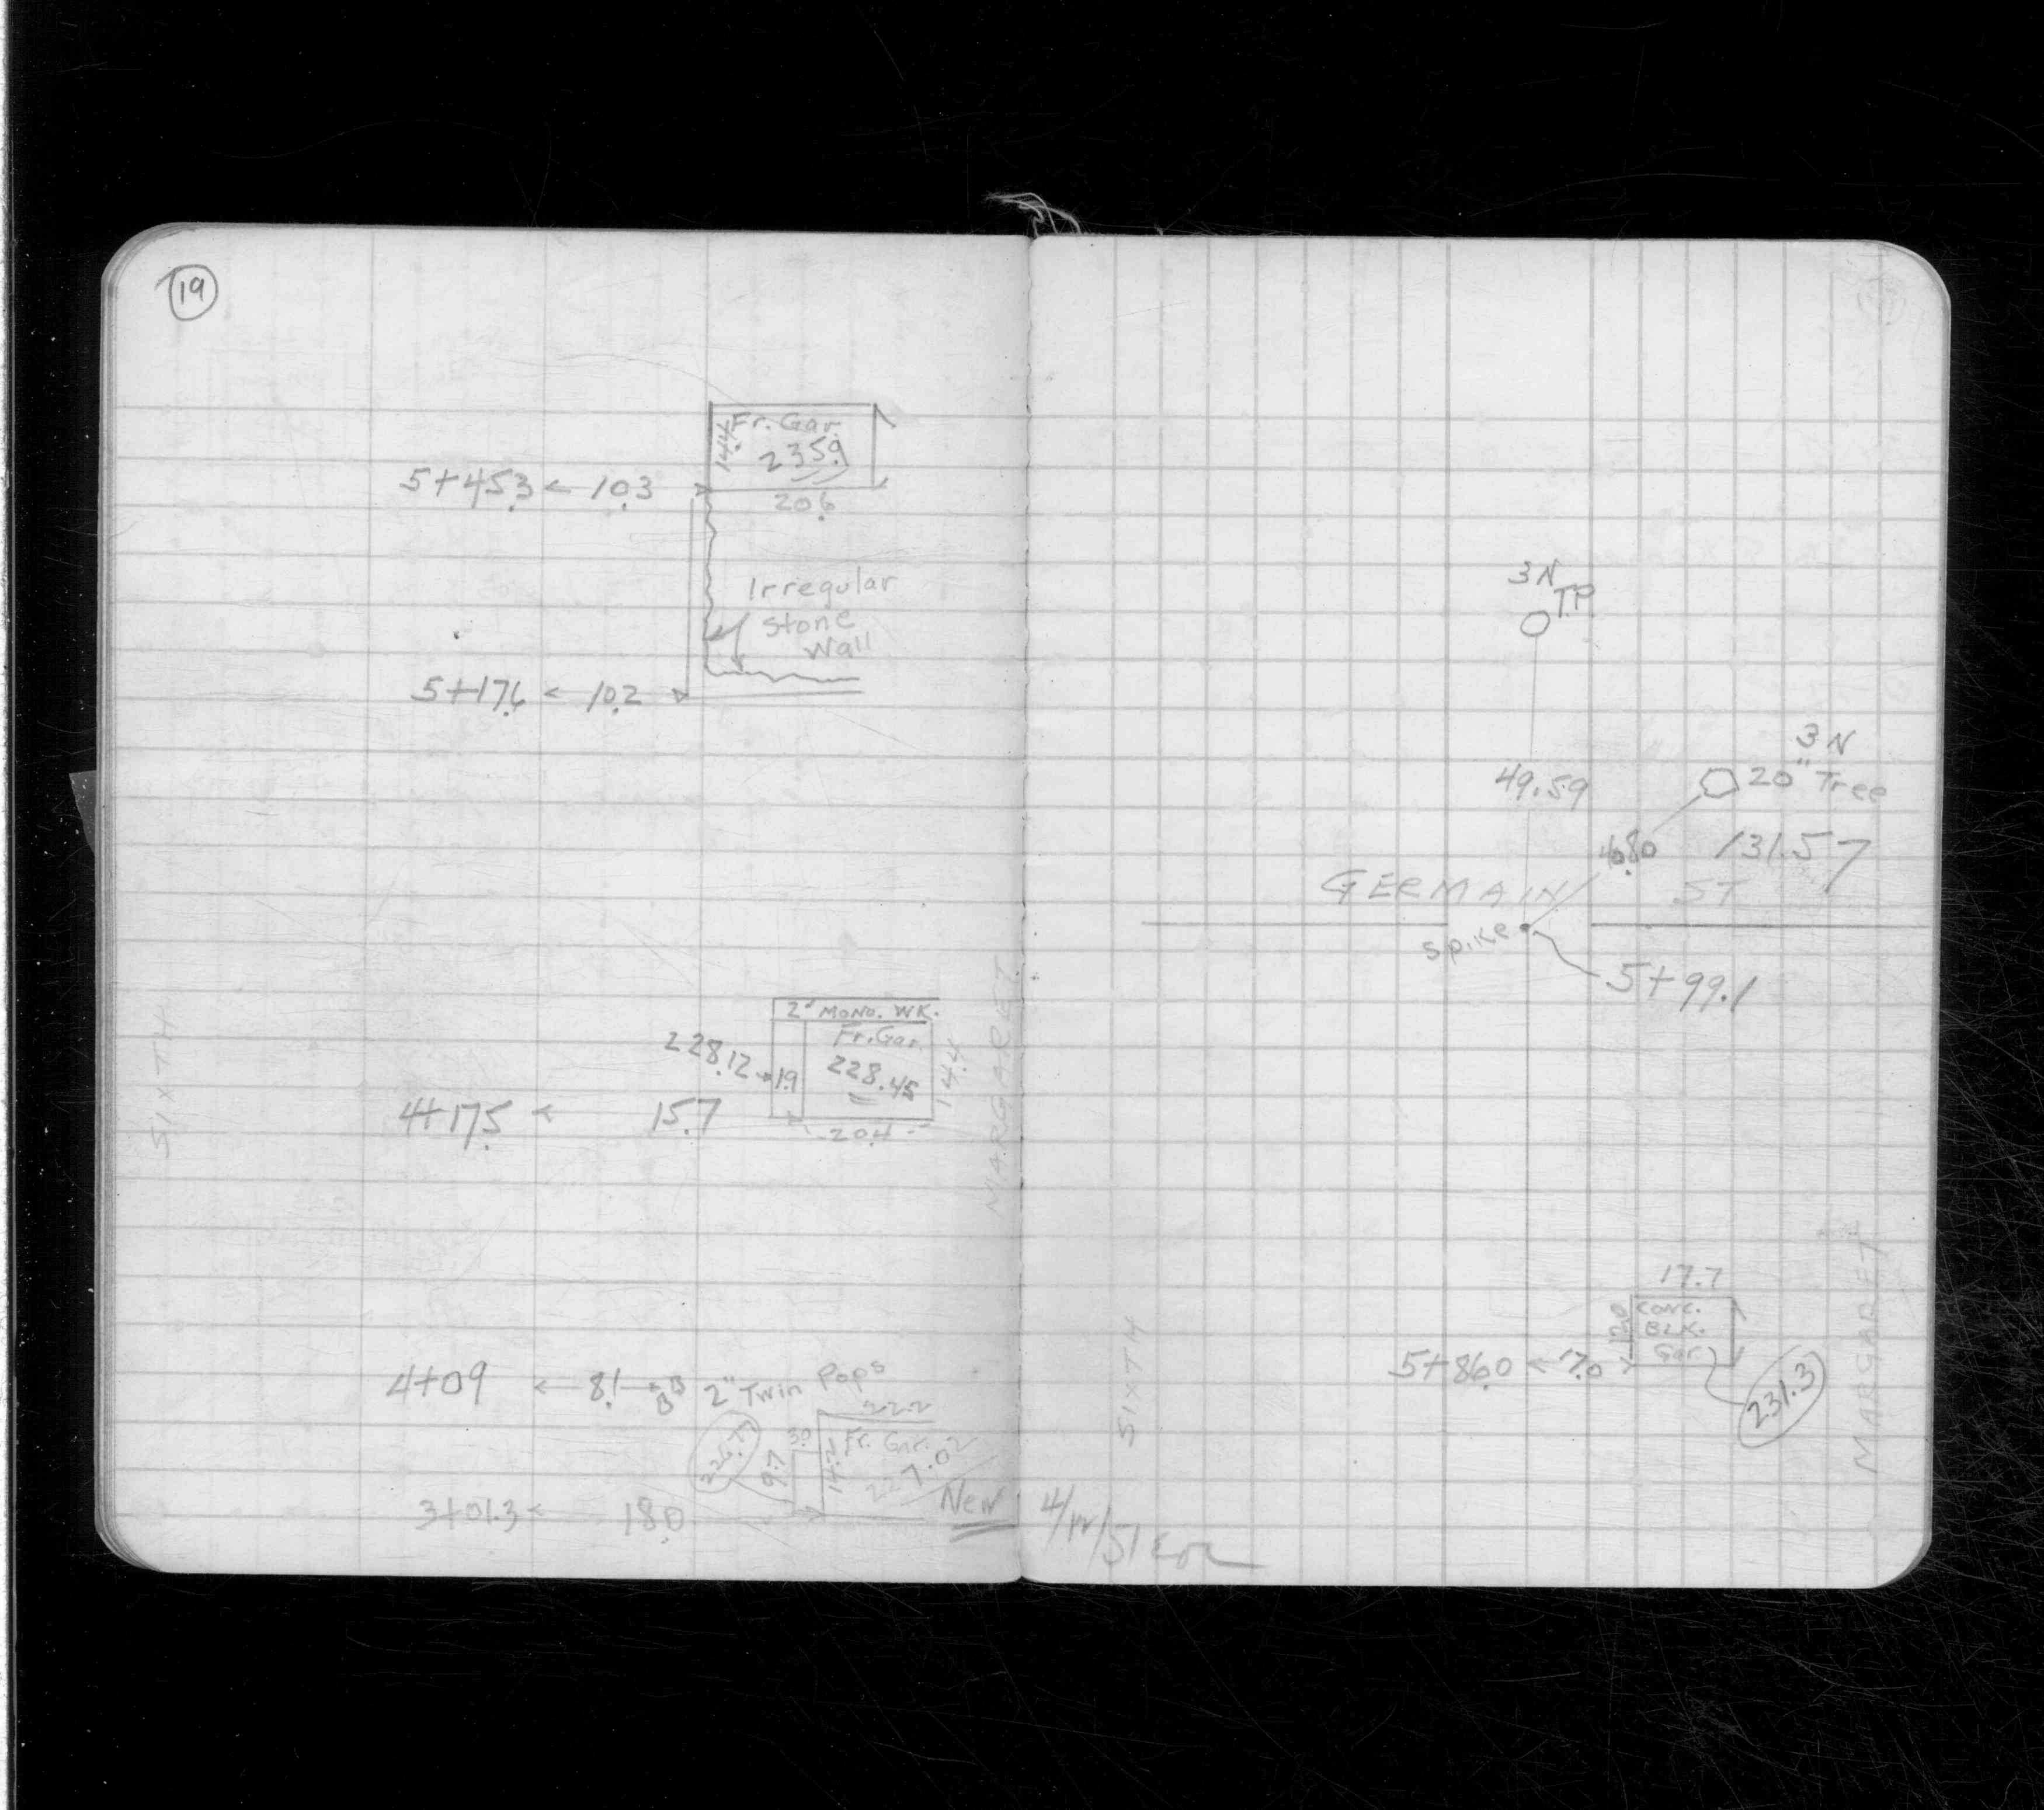 19
Fr. Gar.
14.4
235.9
5+45.3 ← 10.3
20.6
Irregular
Stone
Wall
5+17.6 ← 10.2
SIXTH
MARGARET
2' MONO. WK.
Fr. Gar.
228.12 → 1.9
228.45
14.4
4+17.5 ← 15.7
20.4
4+09 ← 8.1 → 2" Twin Pops
22.2
3.0
Fr. Gar.
9.7
14.2
227.02
3+01.3 ← 18.0
New
3 N
T.P.
3 N
49.59
20" Tree
131.57
GERMAIN ST
Spike
5+99.1
17.7
CONC.
BLK.
Gar.
5+86.0 ← 17.0
231.3
SIXTH
MARGARET